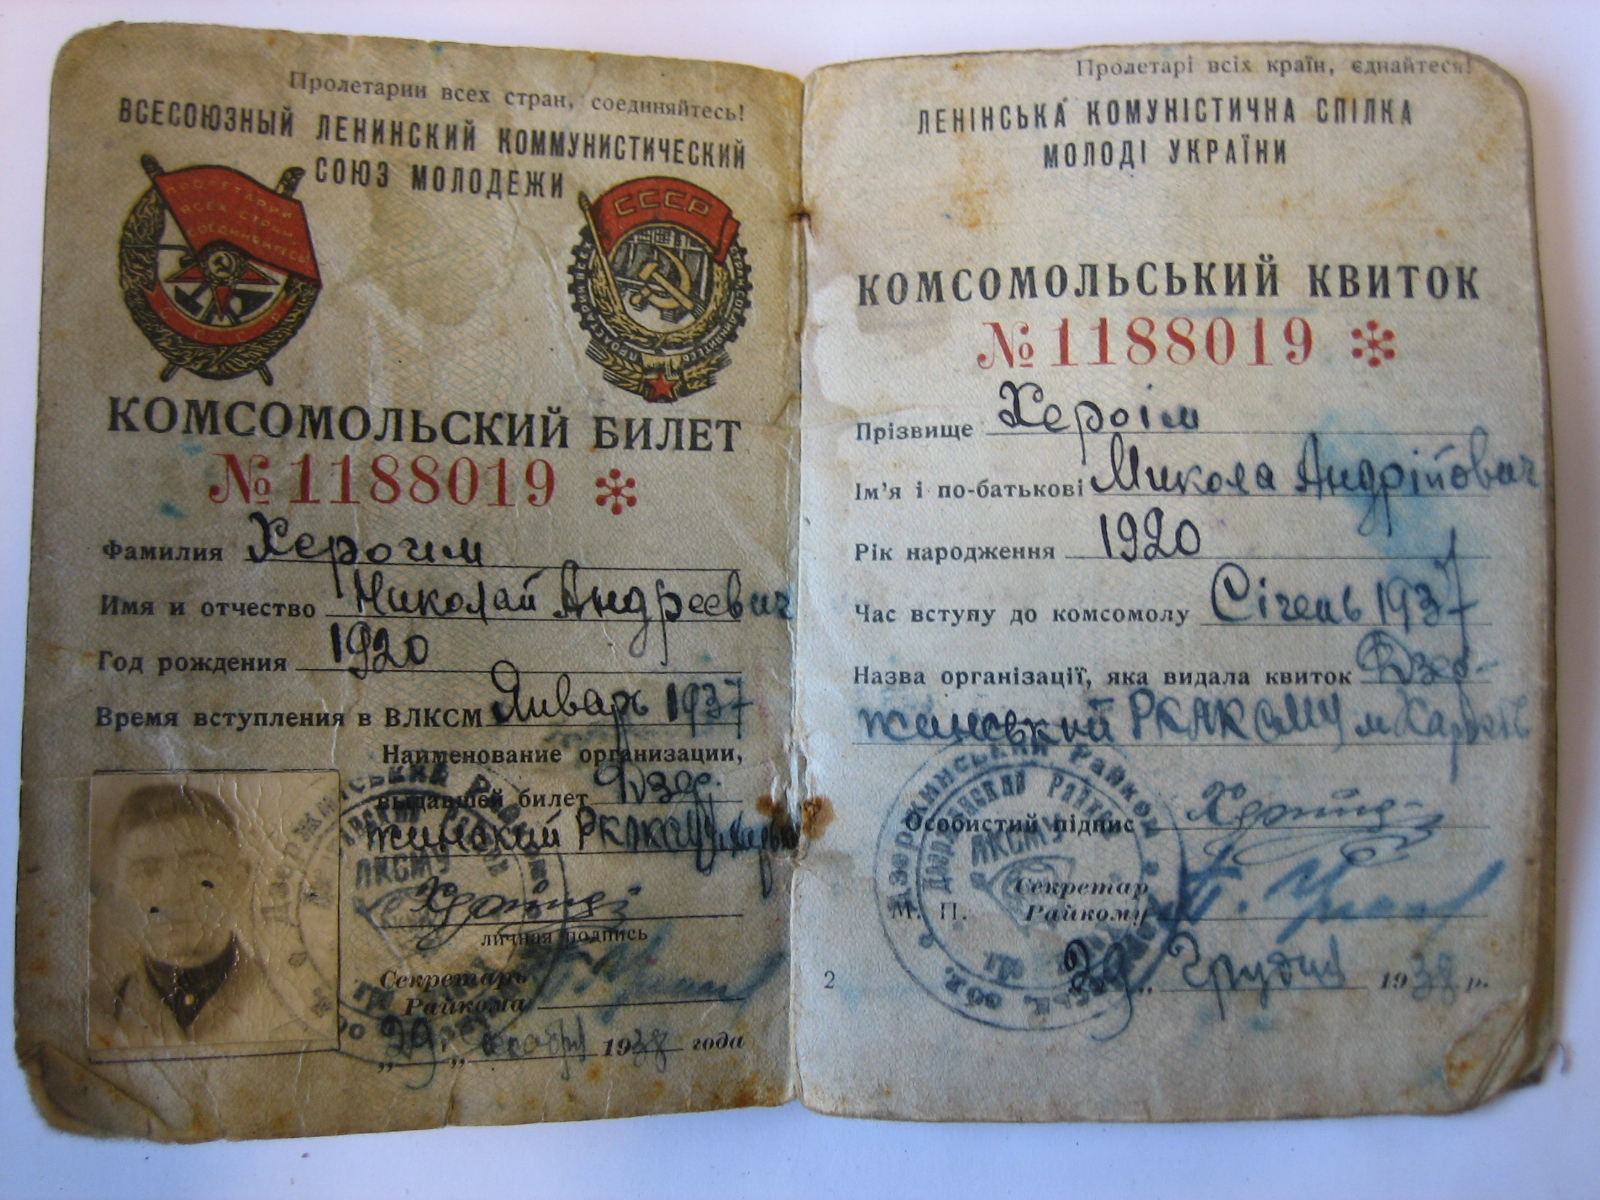 Пролетарии всех стран, соединяйтесь!
ВСЕСОЮЗНЫЙ ЛЕНИНСКИЙ КОММУНИСТИЧЕСКИЙ
СОЮЗ МОЛОДЕЖИ
ПРОЛЕТАРИИ
ВСЕХ СТРАН
СОЕДИНЯЙТЕСЬ!
СССР
СССР
КОМСОМОЛЬСКИЙ БИЛЕТ
№ 1188019 *
Фамилия Хероим
Имя и отчество Николай Андреевич
Год рождения 1920
Время вступления в ВЛКСМ Январь 1937
Наименование организации,
выдавшей билет Дзер-
жинский РКЛКСМУ
личная подпись
Секретарь
Райкома
„29„ декабря 1938 года
Пролетарі всіх країн, єднайтеся!
ЛЕНІНСЬКА КОМУНІСТИЧНА СПІЛКА
МОЛОДІ УКРАЇНИ
КОМСОМОЛЬСЬКИЙ КВИТОК
№ 1188019 *
Прізвище Хероім
Ім'я і по-батькові Микола Андрійович
Рік народження 1920
Час вступу до комсомолу Січень 1937
Назва організації, яка видала квиток Дзер-
жинський РКЛКСМУ м Харків
Особистий підпис
Секретар
М. П. Райкому
„29„ Грудня 1938 р.
2